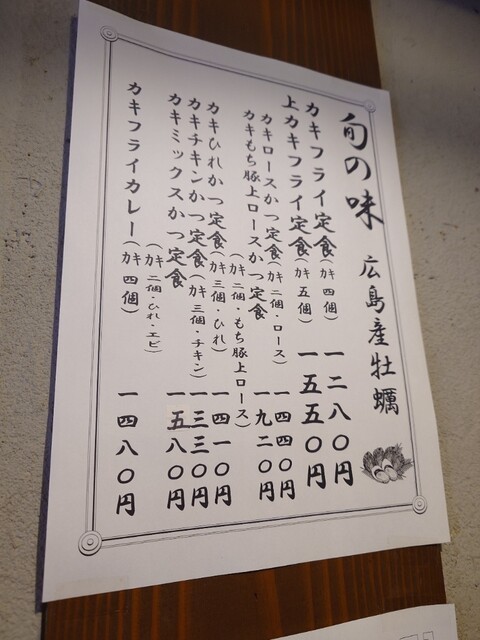 旬の味 広島産牡蠣
カキフライ定食(カキ四個) 一二八〇円
上カキフライ定食(カキ五個) 一五五〇円
カキロースかつ定食(カキ二個・ロース) 一四四〇円
カキもち豚上ロースかつ定食
(カキ二個・もち豚上ロース) 一九二〇円
カキひれかつ定食(カキ三個・ひれ) 一四一〇円
カキチキンかつ定食(カキ三個・チキン) 一三三〇円
カキミックスかつ定食
(カキ二個・ひれ・エビ) 一五八〇円
カキフライカレー(カキ四個) 一四八〇円